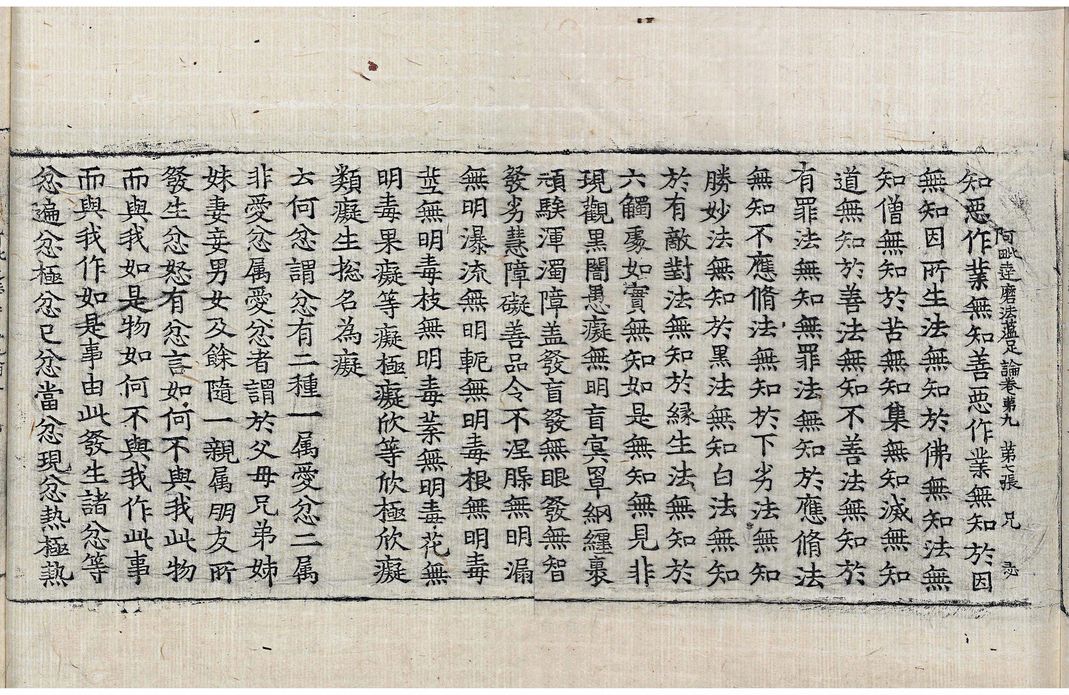 阿毗達磨法蘊足論卷第九 第七張 兄
知惡作業無知善惡作業無知於因
無知因所生法無知於佛無知法無
知僧無知於苦無知集無知滅無知
道無知於善法無知不善法無知於
有罪法無知無罪法無知於應脩法
無知不應脩法無知於下劣法無知
勝妙法無知於黑法無知白法無知
於有敵對法無知於緣生法無知於
六觸處如實無知如是無知無見非
現觀黑闇愚癡無明盲冥罩網纏裹
頑騃渾濁障盖發盲發無眼發無智
發劣慧障礙善品令不涅槃無明漏
無明瀑流無明軛無明毒根無明毒
莖無明毒枝無明毒葉無明毒花無
明毒果癡等癡極癡欣等欣極欣癡
類癡生捴名為癡
云何忿謂忿有二種一属愛忿二属
非愛忿属愛忿者謂於父母兄弟姊
妹妻妾男女及餘隨一親属朋友所
發生忿怒有忿言如何不與我此物
而與我如是物如何不與我作此事
而與我作如是事由此發生諸忿等
忿遍忿極忿已忿當忿現忿熱極熱